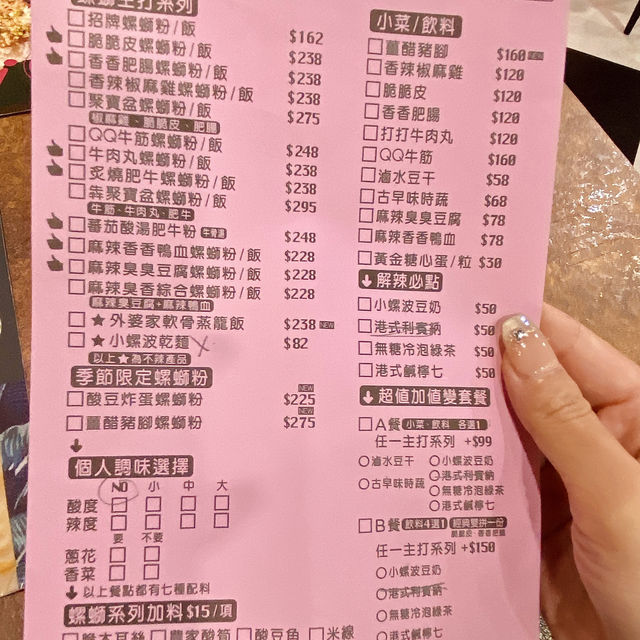 螺螄主打系列
招牌螺螄粉/飯 $162
脆脆皮螺螄粉/飯 $238
香香肥腸螺螄粉/飯 $238
香辣椒麻雞螺螄粉/飯 $238
聚寶盆螺螄粉/飯 $275
椒麻雞、脆脆皮、肥腸
QQ牛筋螺螄粉/飯 $248
牛肉丸螺螄粉/飯 $238
炙燒肥牛螺螄粉/飯 $238
犇聚寶盆螺螄粉/飯 $295
牛筋、牛肉丸、肥牛
番茄酸湯肥牛粉 $248
麻辣香香鴨血螺螄粉/飯 $228
麻辣臭臭豆腐螺螄粉/飯 $228
麻辣臭香綜合螺螄粉/飯 $228
麻辣臭豆腐+麻辣鴨血
★外婆家軟骨蒸籠飯 $238 NEW
★小螺波乾麵 $82
以上★為不辣產品
季節限定螺螄粉
NEW
酸豆炸蛋螺螄粉 $225
NEW
薑醋豬腳螺螄粉 $275
個人調味選擇
NO 小 中 大
酸度
辣度
要 不要
蔥花
香菜
以上餐點都有七種配料
螺螄系列加料 $15/項
農家酸筍 酸豆角 米線
小菜/飲料
薑醋豬腳 $160 NEW
香辣椒麻雞 $120
脆脆皮 $120
香香肥腸 $120
打打牛肉丸 $120
QQ牛筋 $160
滷水豆干 $58
古早味時蔬 $68
麻辣臭臭豆腐 $78
麻辣香香鴨血 $78
黃金糖心蛋/粒 $30
解辣必點
小螺波豆奶 $50
港式利賓納 $50
無糖冷泡綠茶 $50
港式鹹檸七 $50
超值加值變套餐
A餐 小菜、飲料 各選1
任一主打系列 +$99
滷水豆干 小螺波豆奶
古早味時蔬 港式利賓納
無糖冷泡綠茶
港式鹹檸七
B餐 飲料4選1 經典雙拼一份
脆脆皮、香香肥腸
任一主打系列 +$150
小螺波豆奶
港式利賓納
無糖冷泡綠茶
港式鹹檸七